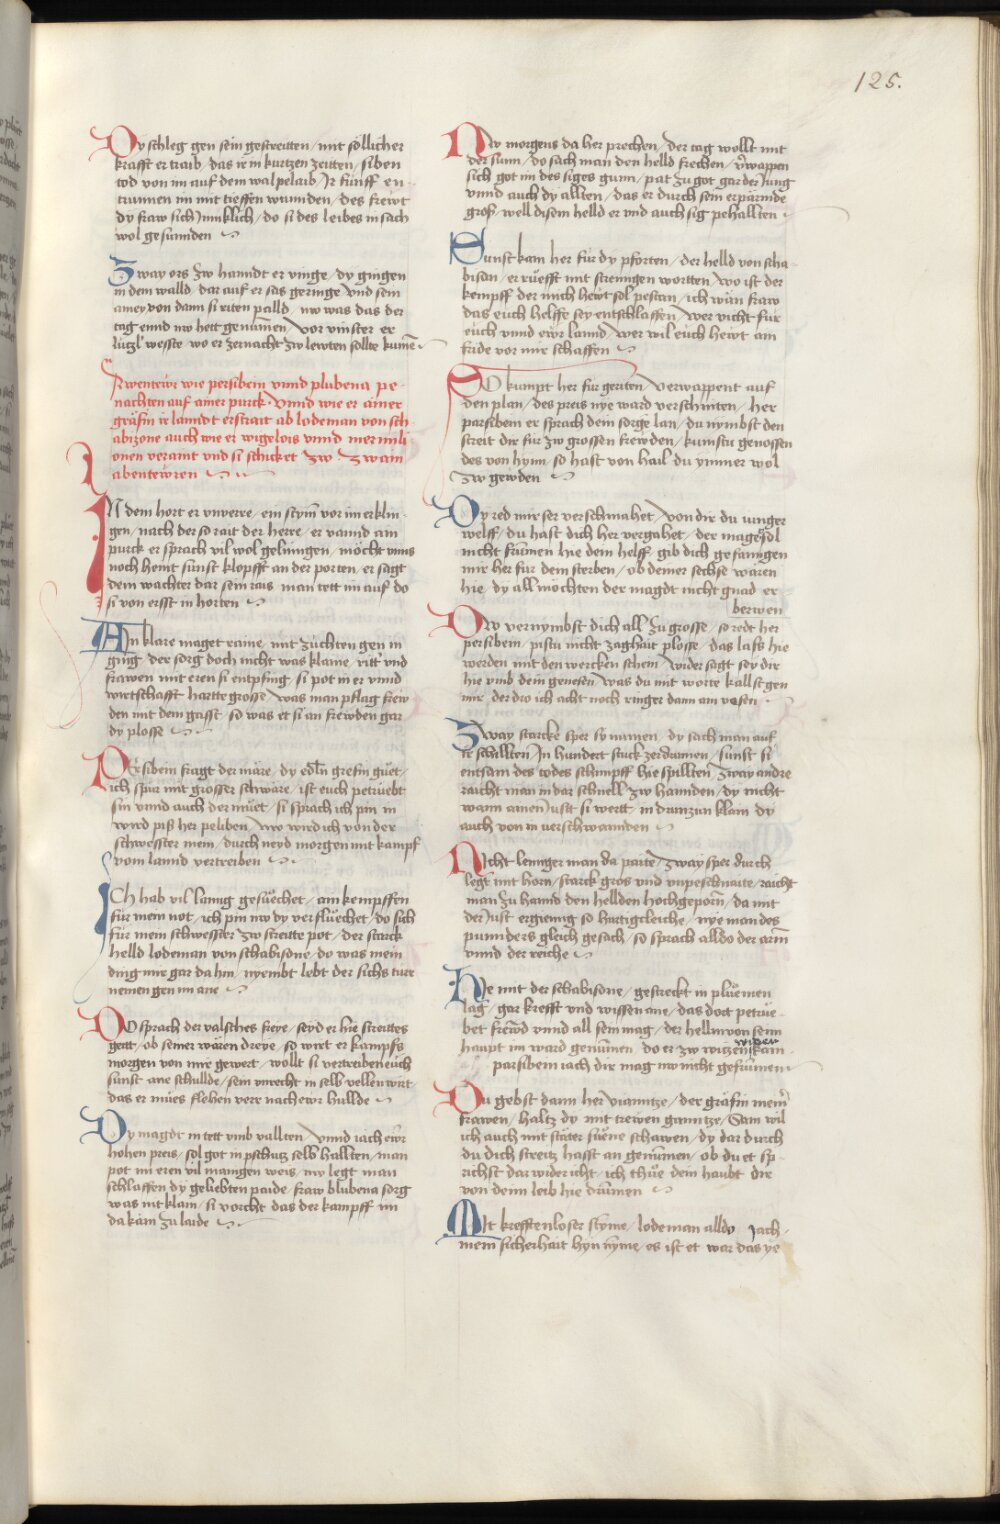 125.
Dy schleg gen sein gestreitten / mit söllicher
krafft er traib / das ir in kurtzen zeitten / siben
tod von im auf dem wal pelaib / Ir fünff en
trunnen im mit tieffen wunnden / des frewt
dy fraw sich Innikleich / do si des leibes in sach
wol gesunnden
Zway ors zw hanndt er vinge / dy gingen
in dem walld / dar auf er sas geringe Vnd sein
amey von dann si riten palld / nw was das der
tag ennd nw hett genumen / vor vinster er
lützl wesste wo er zernacht zw lewten sollte kumen
Awentewr wie persibein vnnd plubena pe
nachten auf ainer purck Vnnd wie er ainer
gräfin ir lanndt erstrait ab lodeman von sch
abizone auch wie er wigelois vnnd mermili
onen veraint vnd si schicket zw zwain
abentewren
In dem hort er vnverre / ein stym vor im erklin
gen / nach der so rait der herre / er vannd ain
purck er sprach vil wol gelunngen / möcht vnns
noch heint sunst klopfft an der porten / er sagt
dem wachter dar sein rais man tett im auf do
si von ersst in horten
Ain klare maget raine / mit züchten gen im
ging / der sorg doch nicht was klaine / ritt vnd
frawen mit eren si entpfing / si pot in er vnnd
wirtschafft hartte grosse was man pflag frew
den mit dem gasst / so was et si an frewden gar
dy plosse
Persibein fragt der märe / dy edln grefin guet /
ich spür mit grosser schwäre / ist euch petruebt
sin vnnd auch der muet / si sprach ich pin in
wird piß her peliben / wo wird ich von der
schwesster mein / durch neyd morgen mit kampf
vom lannd vertreiben
Ich hab vil lanng gesuechet / ain kempffen
für mein not / ich pin nw dy verfluechet / do sich
für mein schwesster zw streitte pot / der starck
helld lodeman von schabisone / do was mein
ding mir gar da hin / nyembt lebt der sichs turr
nemen gen im ane
Do sprach der valsches freye / seyd er hie streittes
gertt / ob seiner wären dreye / so wirt er kampfs
morgen von mir gewert / wollt si vertreiben euch
sunst ane schullde / sein vnrecht in selb vellen wirt
das er mues flehen verr nach ewr hullde
Dy magdt in tett vmb vallten / Vnnd iach ewr
hohen preis / sol got in pschutz selb hallten / man
pot im eren vil manngen weis / nw legt man
schlaffen dy geliebten paide / fraw blubena sorg
was nit klain / si vorcht das der kampff im
da käm zu laide
Nw morgens da her prechen / der tag wollt mit
der sunn / do sach man den helld frechen / Verwappen
sich got im des siges gunn / pat zu got gar der Jung
vnnd auch dy allten / das er durch sein erpärmde
gros / well disem helld er vnd auch sig pehallten
Sunst kam her für dy pforten / der helld von scha
bisan / er ruefft mit strenngen wortten / wo ist der
kempff der mich hewt sol pestan / ich wän fraw
das euch helffe sey entschlaffen / wer vicht für
euch vnnd ewr lannd / wer wil euch hewt am
fride vor mir schaffen
Do kumpt her für geriten / verwappent auf
den plan / des preis nye ward verschniten / her
parsibein er sprach dem sorge lan / du nymbst den
streit dir für zw grossen frewden / kumstu genossen
des von hynn / so hast von hail du ymmer wol
zw gewden
Dy red mir ser verschmahet / Von dir du iunger
welff / du hast dich her vergahet / der maget sol
nicht frumen hie dem helff / gib dich gefanngen
mir her für dem sterben / ob deiner sechse wären
hie / dy all möchten der magdt nicht gnad er
berwen
Dw vernymbst dich all zu grosse / so redt her
persibein / pistu nicht zaghait plosse / das lass hie
werden mit den wercken schein / wider sagt sey dir
hie vmb dein genesen / was du mit worte kallst gen
mir / der dro ich acht noch ringer dann ain vesen
Zway starcke sper sy namen / dy sach man auf
ir schillten / In hundert stuck zerdramen / sunst si
entsam des todes schimpff hie spillten / zway andre
raicht man in dar schnell zw hannden / dy nicht
wann ainen Just si wertt / in drunzun klain dy
auch von in verschwannden
Nicht lennger man da paite / zway sper durch
legt mit horn / starck gros vnd vnpeschnaite / raicht
man zu hannd den hellden hochgeporn / da mit
der Just ergienng so hartigcleiche / nye man des
punnders gleich gesach / so sprach alldo der arm
vnnd der reiche
Hie mit der schabisone / gestreckt in pluemen
lag / gar krefft vnd wissen ane / das dort petrue
bet frewd vnnd all sein mag / der helm von seim
haupt im ward genumen / do er zw witzen wider kam
parsibein iach dir mag nw nicht gefrumen
Du gebst dann her vianntze / der gräfin meiner
frawen / haltz dy mit trewen ganntze / Sam wil
ich auch mit stäter suene schawen / dy dar durch
du dich streitz hasst an genumen / ob du et sp
richst dar wider icht / ich thue dein haubt dir
von deim leib hie drumen
Mit krefftenloser stymme / lodeman alldo Jach
mein sicherhait hyn nyme / es ist et war das ye